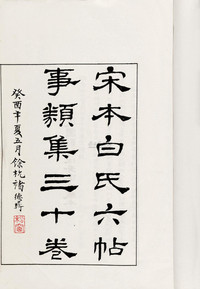 宋本白氏六帖
事類集三十卷
癸酉年夏五月餘杭褚德彝